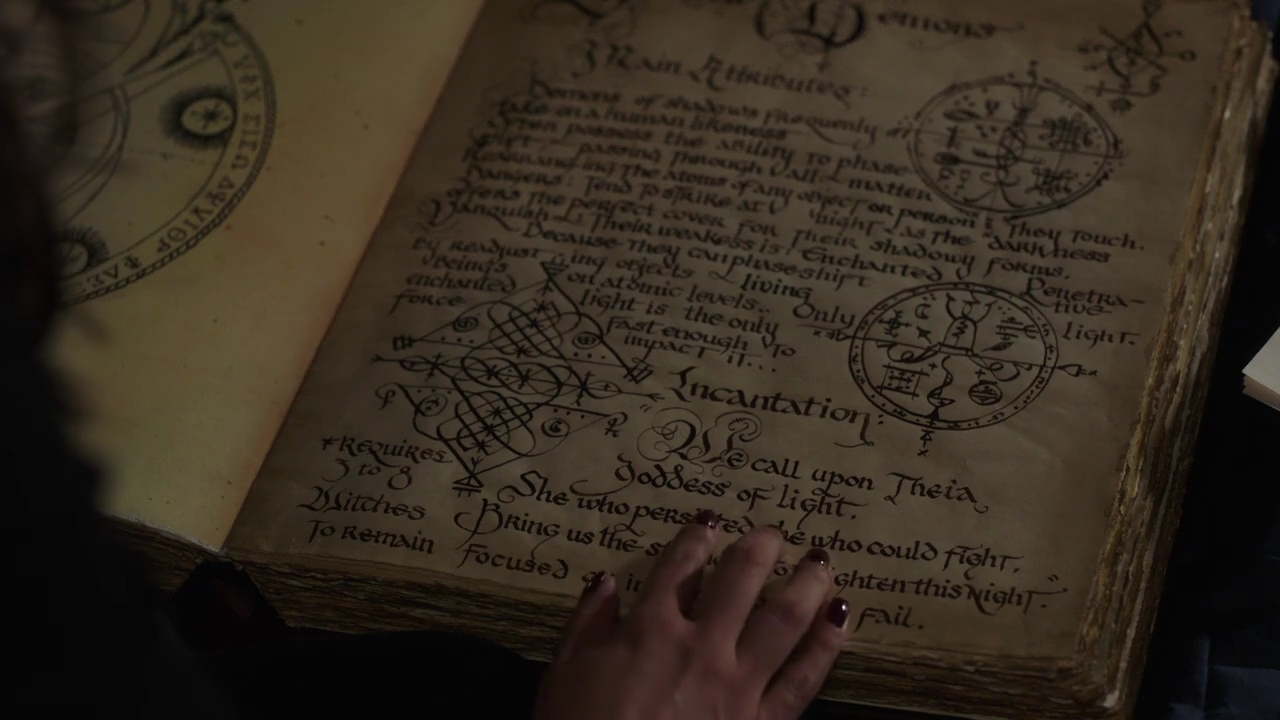 Demons
Main Attributes:
Demons of shadows frequently
take on a human likeness
Often possess the ability to phase
shift passing through all matter
Rearranging the atoms of any object or person they touch.
Dangers: Tend to strike at night as the "darkness
offers the perfect cover for their shadowy forms.
Vanquish: Their weakess is Enchanted
Because they can phase shift Penetra-
tive
by readjusting objects living light.
Being's on atomic levels... Only
enchanted light is the only
force fast enough to
impact it...
Incantation:
"We call upon Theia
Goddess of light.
She who who could fight.
Bring us the this Night."
*Requires
3 to 8
Witches
To Remain Focused
fail.